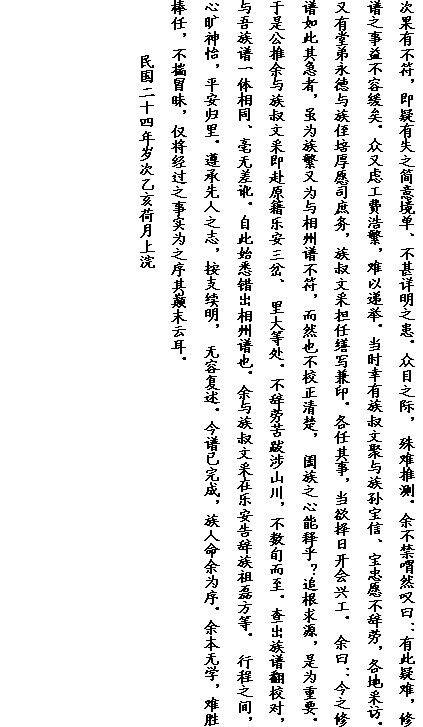 次果有不符，即疑有失之简意境单、不甚详明之患。众目之际，殊难推测。余不禁喟然叹曰：有此疑难，修
谱之事益不容缓矣。众又虑工费浩繁，难以递举。当时幸有族叔文聚与族孙宝信、宝忠愿不辞劳，各地采访。
又有堂弟永德与族侄培厚愿司庶务，族叔文采担任缮写兼印。各任其事，当欲择日开会兴工。余曰：今之修
谱如此其急者，虽为族繁又为与相州谱不符，而然也不校正清楚，阖族之心能释乎？追根求源，是为重要。
于是公推余与族叔文采即赴原籍乐安三岔、里大等处。不辞劳苦跋涉山川，不数旬而至。查出族谱翻校对，
与吾族谱一体相同、毫无差讹。自此始悉错出相州谱也。余与族叔文采在乐安告辞族祖磊方等。行程之间，
心旷神怡，平安归里。遵承先人之志，按支续明，无容复述。今谱已完成，族人命余为序。余本无学，难胜
棒任，不揣冒昧，仅将经过之事实为之序其颠末云耳。
民国二十四年岁次乙亥荷月上浣